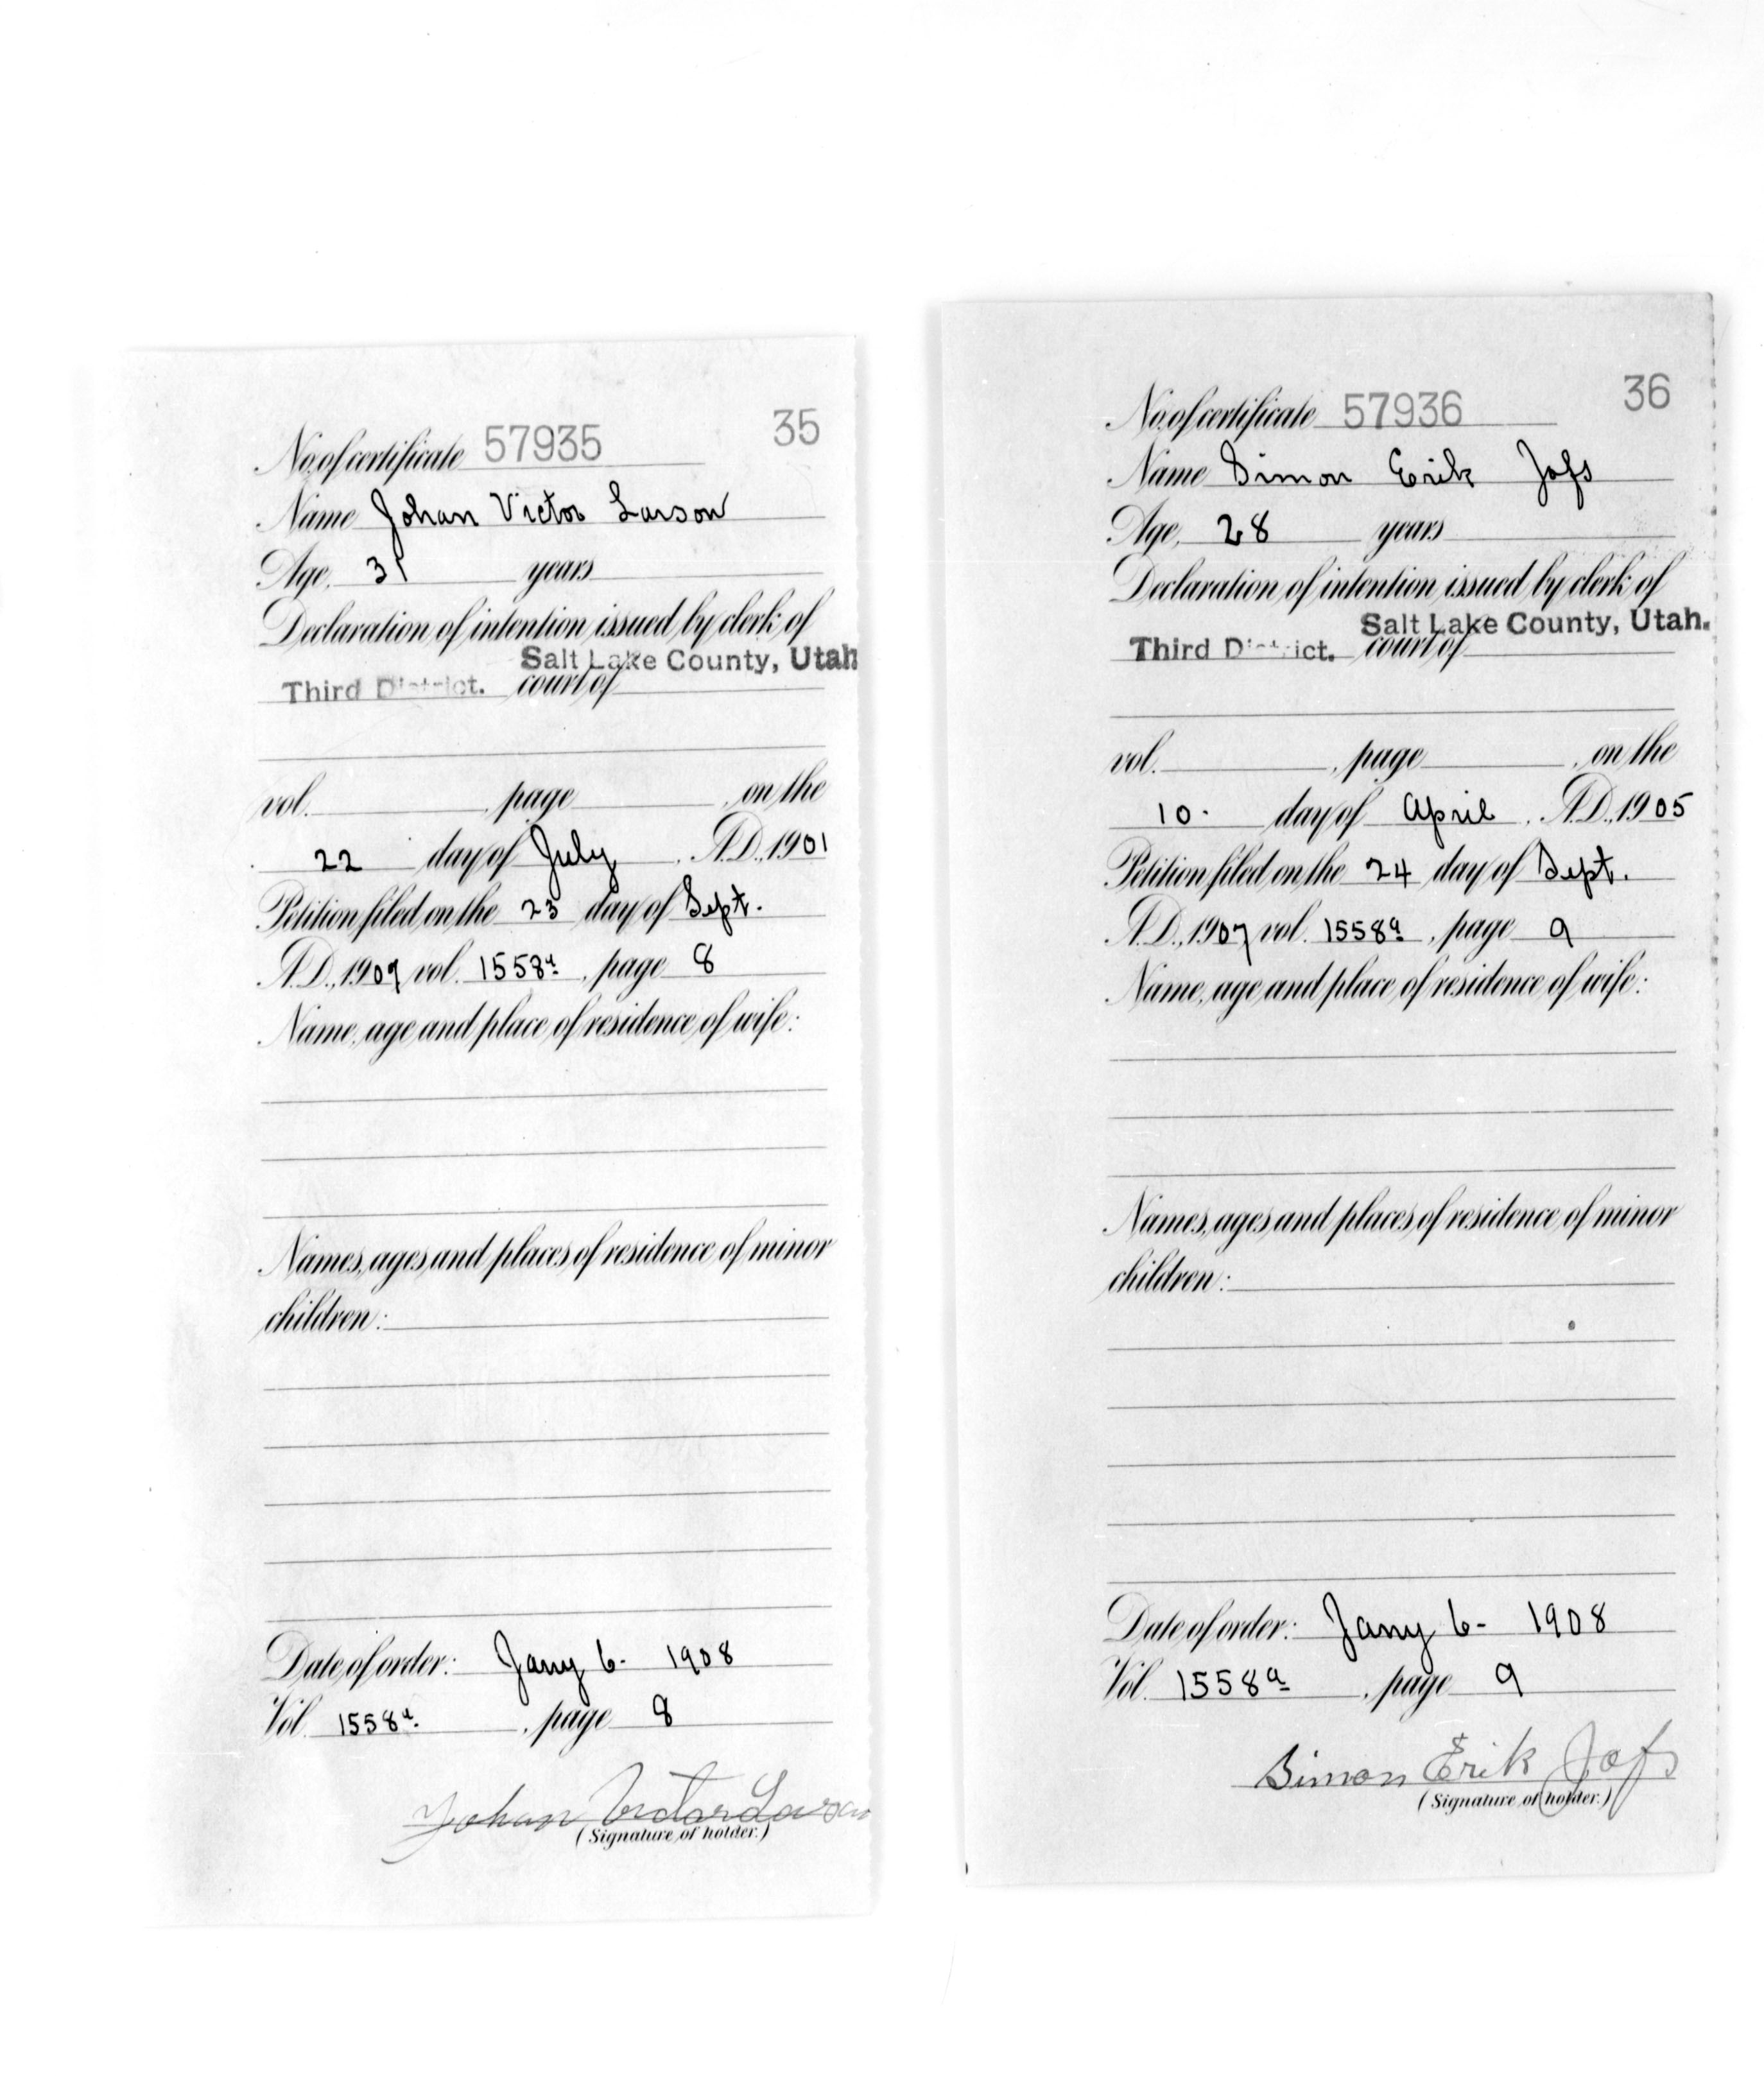 35
No. of certificate 57935
Name Johan Victor Larson
Age, 31 years
Declaration of intention issued by clerk of
Salt Lake County, Utah
Third District. court of
vol. , page , on the
22 day of July , A.D., 1901
Petition filed on the 23 day of Sept.
A.D., 1907 vol. 1558a , page 8
Name, age and place of residence of wife:
Names, ages and places of residence of minor
children:
Date of order: Jany 6- 1908
Vol. 1558a. , page 8
Johan Victor Larson
(Signature of holder.)
36
No. of certificate 57936
Name Simon Erik Jofs
Age, 28 years
Declaration of intention issued by clerk of
Salt Lake County, Utah.
Third District. court of
vol. , page , on the
10. day of April , A.D., 1905
Petition filed on the 24 day of Sept.
A.D., 1907 vol. 1558a , page 9
Name, age and place of residence of wife:
Names, ages and places of residence of minor
children:
Date of order: Jany 6- 1908
Vol. 1558a , page 9
Simon Erik Jofs
(Signature of holder.)